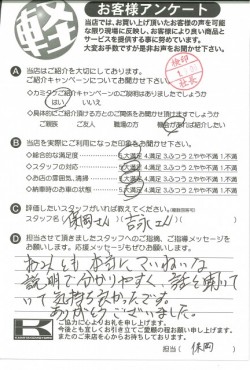 軽
お客様アンケート
当店では、お買い上げ頂いたお客様の声を可能な
限り現場に反映し、お客様により良い商品と
サービスを提供する事に努めています。
大変お手数ですが是非お声をお聞かせ下さい。
検印
社長
A 当店はご紹介を大切にしております。
ご紹介キャンペーンについてお聞かせ下さい。
◇カミタケご紹介キャンペーンのご説明はありましたでしょうか
はい いいえ
◇どのような関係の方をご紹介頂けますでしょうか
ご親族 ご友人 職場の方 機会があれば紹介したい
B 当店を実際にご利用になった印象をお聞かせ下さい。
◇総合的な満足度 5.大満足 4.満足 3.ふつう 2.やや不満 1.不満
◇スタッフの対応 5.大満足 4.満足 3.ふつう 2.やや不満 1.不満
◇お店の雰囲気、清掃 5.大満足 4.満足 3.ふつう 2.やや不満 1.不満
◇納車時のお車の状態 5.大満足 4.満足 3.ふつう 2.やや不満 1.不満
C 評価したいスタッフがいれば教えてください。
スタッフ名( 保岡さん )( 吉永さん )
D 担当させて頂きましたスタッフへのご指摘、ご指導メッセージを
お願いします。応援メッセージもぜひお聞かせ下さい。
お二人とも 本当にていねいな
説明で分かりやすく 話を聞いて
いて気持ち良かったです。
ありがとうございました。
K
ご協力に心よりお礼を申し上げます。
今後とも宜しくお引き立てご愛顧の程お願い申し上げます。
またのご来店を心からお待ちしております。
担当( 保岡 )